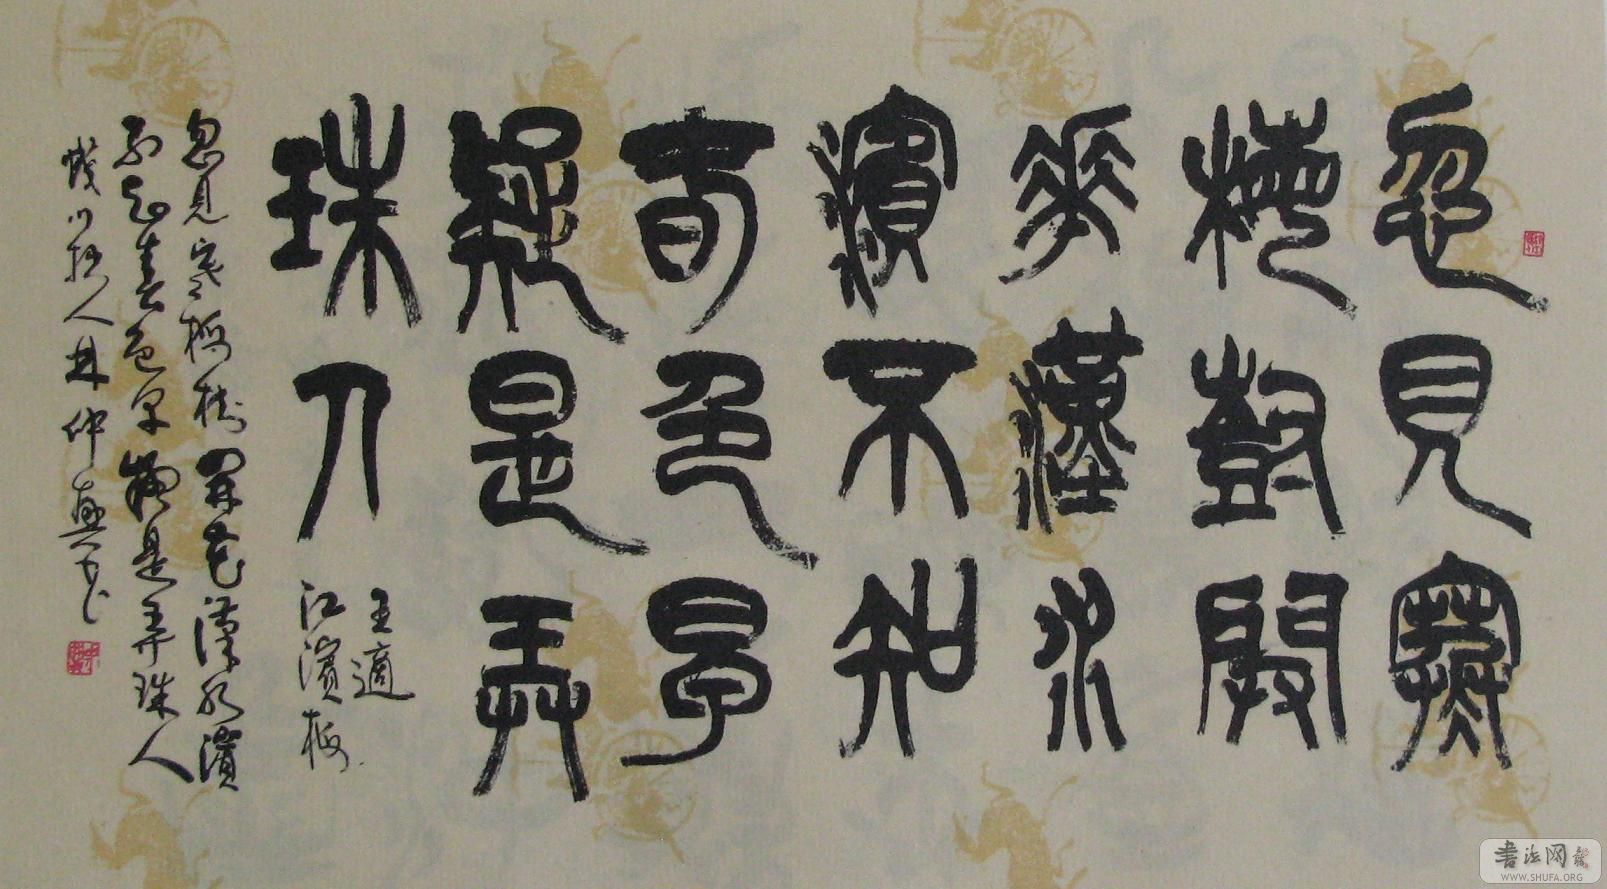 忽見寒
梅樹開
華漢水
濱不知
春色早
疑是弄
珠人
王適
江濱梅
忽見寒梅樹開花漢水濱
不知春色早疑是弄珠人
川拙人林仲興書
書法网
WWW.SHUFA.ORG